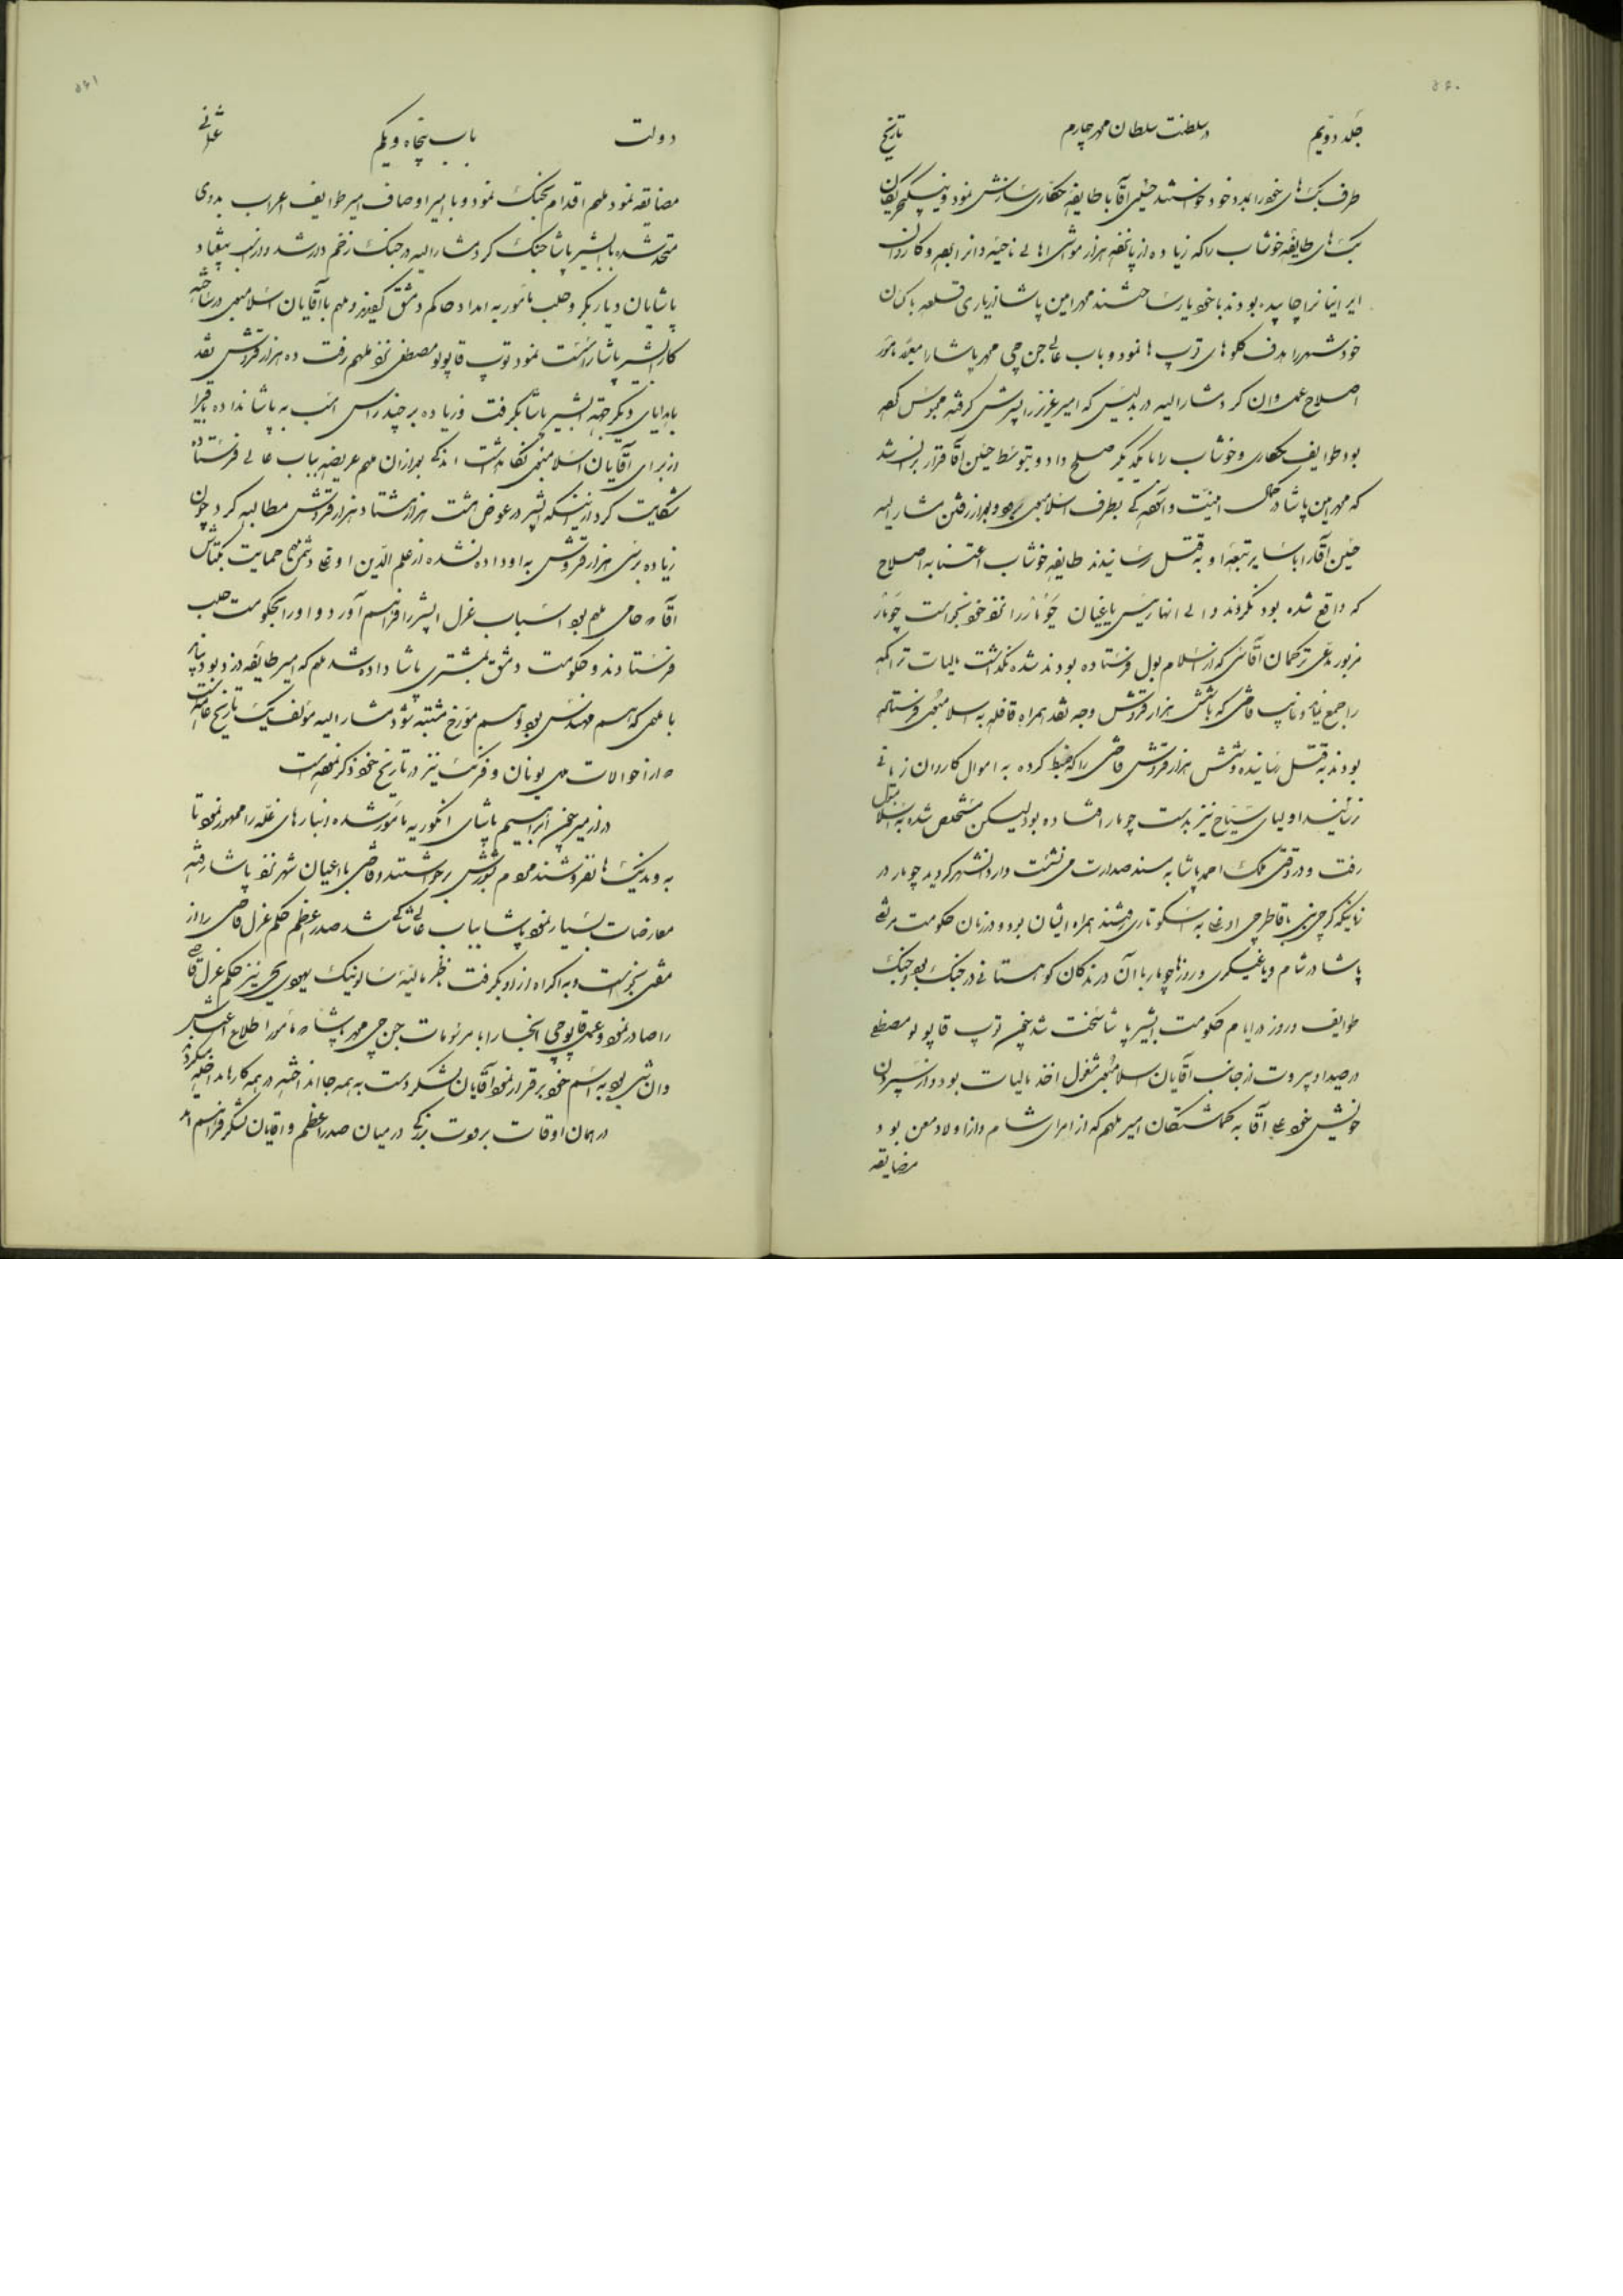 ۵۶۰
جلد دویّم در سلطنت سلطان محمد چهارم تاریخ
طرف بیک‌های خود را بمدد خود خواستند حنفی آقا با طایفهٔ حکاری سازش نمود
بیک‌های طایفهٔ خوشاب را که زیاده از پانصد هزار مواشی اهالی ناحیهٔ و کاروان
ایرانیانرا چاپیده بودند با خود یار ساختند محمد امین پاشا از یاری قلعه باکان
خود شهر را هدف گلوهای توپ‌ها نمود و باب عالی جن جی محمد پاشا را مأمور
اصلاح عمل وان کرد مشارالیه در بدلیس که امیر عزیز را پسرش گرفته محبوس کرده
بود طوایف حکاری و خوشاب را با یکدیگر صلح داد و بتوسط حنفی آقا قرار بر این شد
که محمد امین پاشا در کمال امنیّت و آسودگی بطرف اسلامبول برود و بعد از رفتن مشارالیه
حنفی آقا را با سایر تبعهٔ او به قتل رسانیدند طایفهٔ خوشاب اعتنا به اصلاح
که واقع شده بود نکردند والی آنها رئیس یاغیان چومار را نزد خود خواست چومار
مزبور مدعی ترکمان آقاسی که از اسلامبول فرستاده بودند شده نگذاشت مالیات تراکمه
را جمع نماید و نایب قاضی که با شش هزار قروش وجه نقد همراه قافله به اسلامبول فرستاده
بودند به قتل رسانیده و شش هزار قروش قاضی را که ضبط کرده به اموال کاروان زیانی
نرسانید اولیای سیّاح نیز بدست چومار افتاده بود لیکن مستخلص شده به اسلامبول
رفت و در وقتی ملک احمد پاشا به مسند صدارت می نشست وارد شهر گردید چومار در
زمانیکه گرجی نبی با قاطرجی اوغلی به اسکوتاری رفتند همراه ایشان بود و در زمان حکومت مرتضی
پاشا در شام و یاغیگری دروزها چومار با آن درندگان کوهستانی در جنگ بود و جنگ
طوایف دروز در ایام حکومت ابشیر پاشا سخت شد چون توپ قاپولو مصطفی
در صیدا و بیروت از جانب آقایان اسلامبول مشغول اخذ مالیات بود و از سپردن
خویش خود علی آقا به گماشتگان امیر ملهم که از امرای شام و از اولاد معن بود
مضایقه
۵۶۱
دولت باب پنجاه و یکم عثمانی
مضایقه نمود ملهم اقدام بجنگ نمود و با امیر اوصاف امیر طوایف اعراب بدوی
متحد شده با ابشیر پاشا جنگ کرد مشارالیه در جنگ زخم‌دار شد
پاشایان دیاربکر و حلب مأمور به امداد حاکم دمشق گردیدند و ملهم با آقایان اسلامبول در ساخته
کار ابشیر پاشا را سست نمود توپ قاپولو مصطفی نزد ملهم رفت ده هزار قروش نقد
با هدایای دیگر جهة ابشیر پاشا بگرفت و زیاده بر چند راس اسب به پاشا نداده باقی را
از برای آقایان اسلامبول نگاهداشت اندکی بعد از آن ملهم عریضه بباب عالی فرستاده
شکایت کرد از اینکه ابشیر در عوض هشت هزار هشتاد هزار قروش مطالبه کرد چون
زیاده بر سی هزار قروش به او داده نشده از علم الدّین اوغلی دشمن ملهم حمایت بکتاش
آقا که حامی ملهم بود اسباب عزل ابشیر را فراهم آورد و او را بحکومت حلب
فرستادند و حکومت دمشق بمشتری پاشا داده شد ملهم که امیر طایفهٔ دروز بود نباید
با ملهمی که اسم مهندس بود و اسم مورّخ مشتبه شود مشارالیه مؤلف یک تاریخ عامّه است
که از احوالات ملل یونان و فرنگ نیز در تاریخ خود ذکر نموده است
در ازمیر چون ابراهیم پاشای انگوریه مأمور شده انبارهای غلّه را ممهور نمود تا
به وندیک‌ها نفروشند مردم بشورش برخواستند و قاضی با اعیان شهر نزد پاشا رفته
معارضات بسیار نمود پاشا بباب عالی شاکی شد صدر اعظم حکم عزل قاضی را از
مفتی بخواست و به اکراه از او بگرفت ناظر مالیهٔ سالونیک یهودی نیز حکم عزل قاضی
را صادر نمود
به اسم خود برقرار نمود آقایان لشکر دست به همه جا انداخته در همه کارها مداخله میکردند
در همان اوقات برودت بزرگی در میان صدر اعظم و آقایان لشکر فراهم آمد